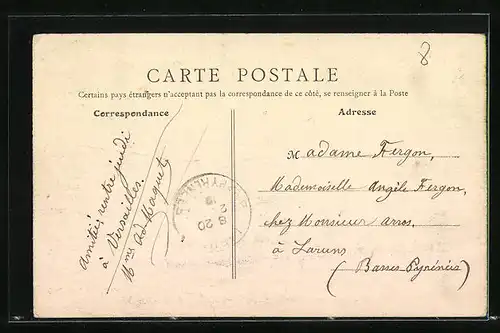 8
CARTE POSTALE
Certains pays étrangers n'acceptant pas la correspondance de ce côté, se renseigner à la Poste
Correspondance
Adresse
Amitiés, rentré jeudi
à Versailles.
Mme Ad Maquet
PYRÉNÉES
8 20
2
Madame Fergon,
Mademoiselle Angèle Fergon,
chez Monsieur Arros,
à Laruns
(Basses-Pyrénées)